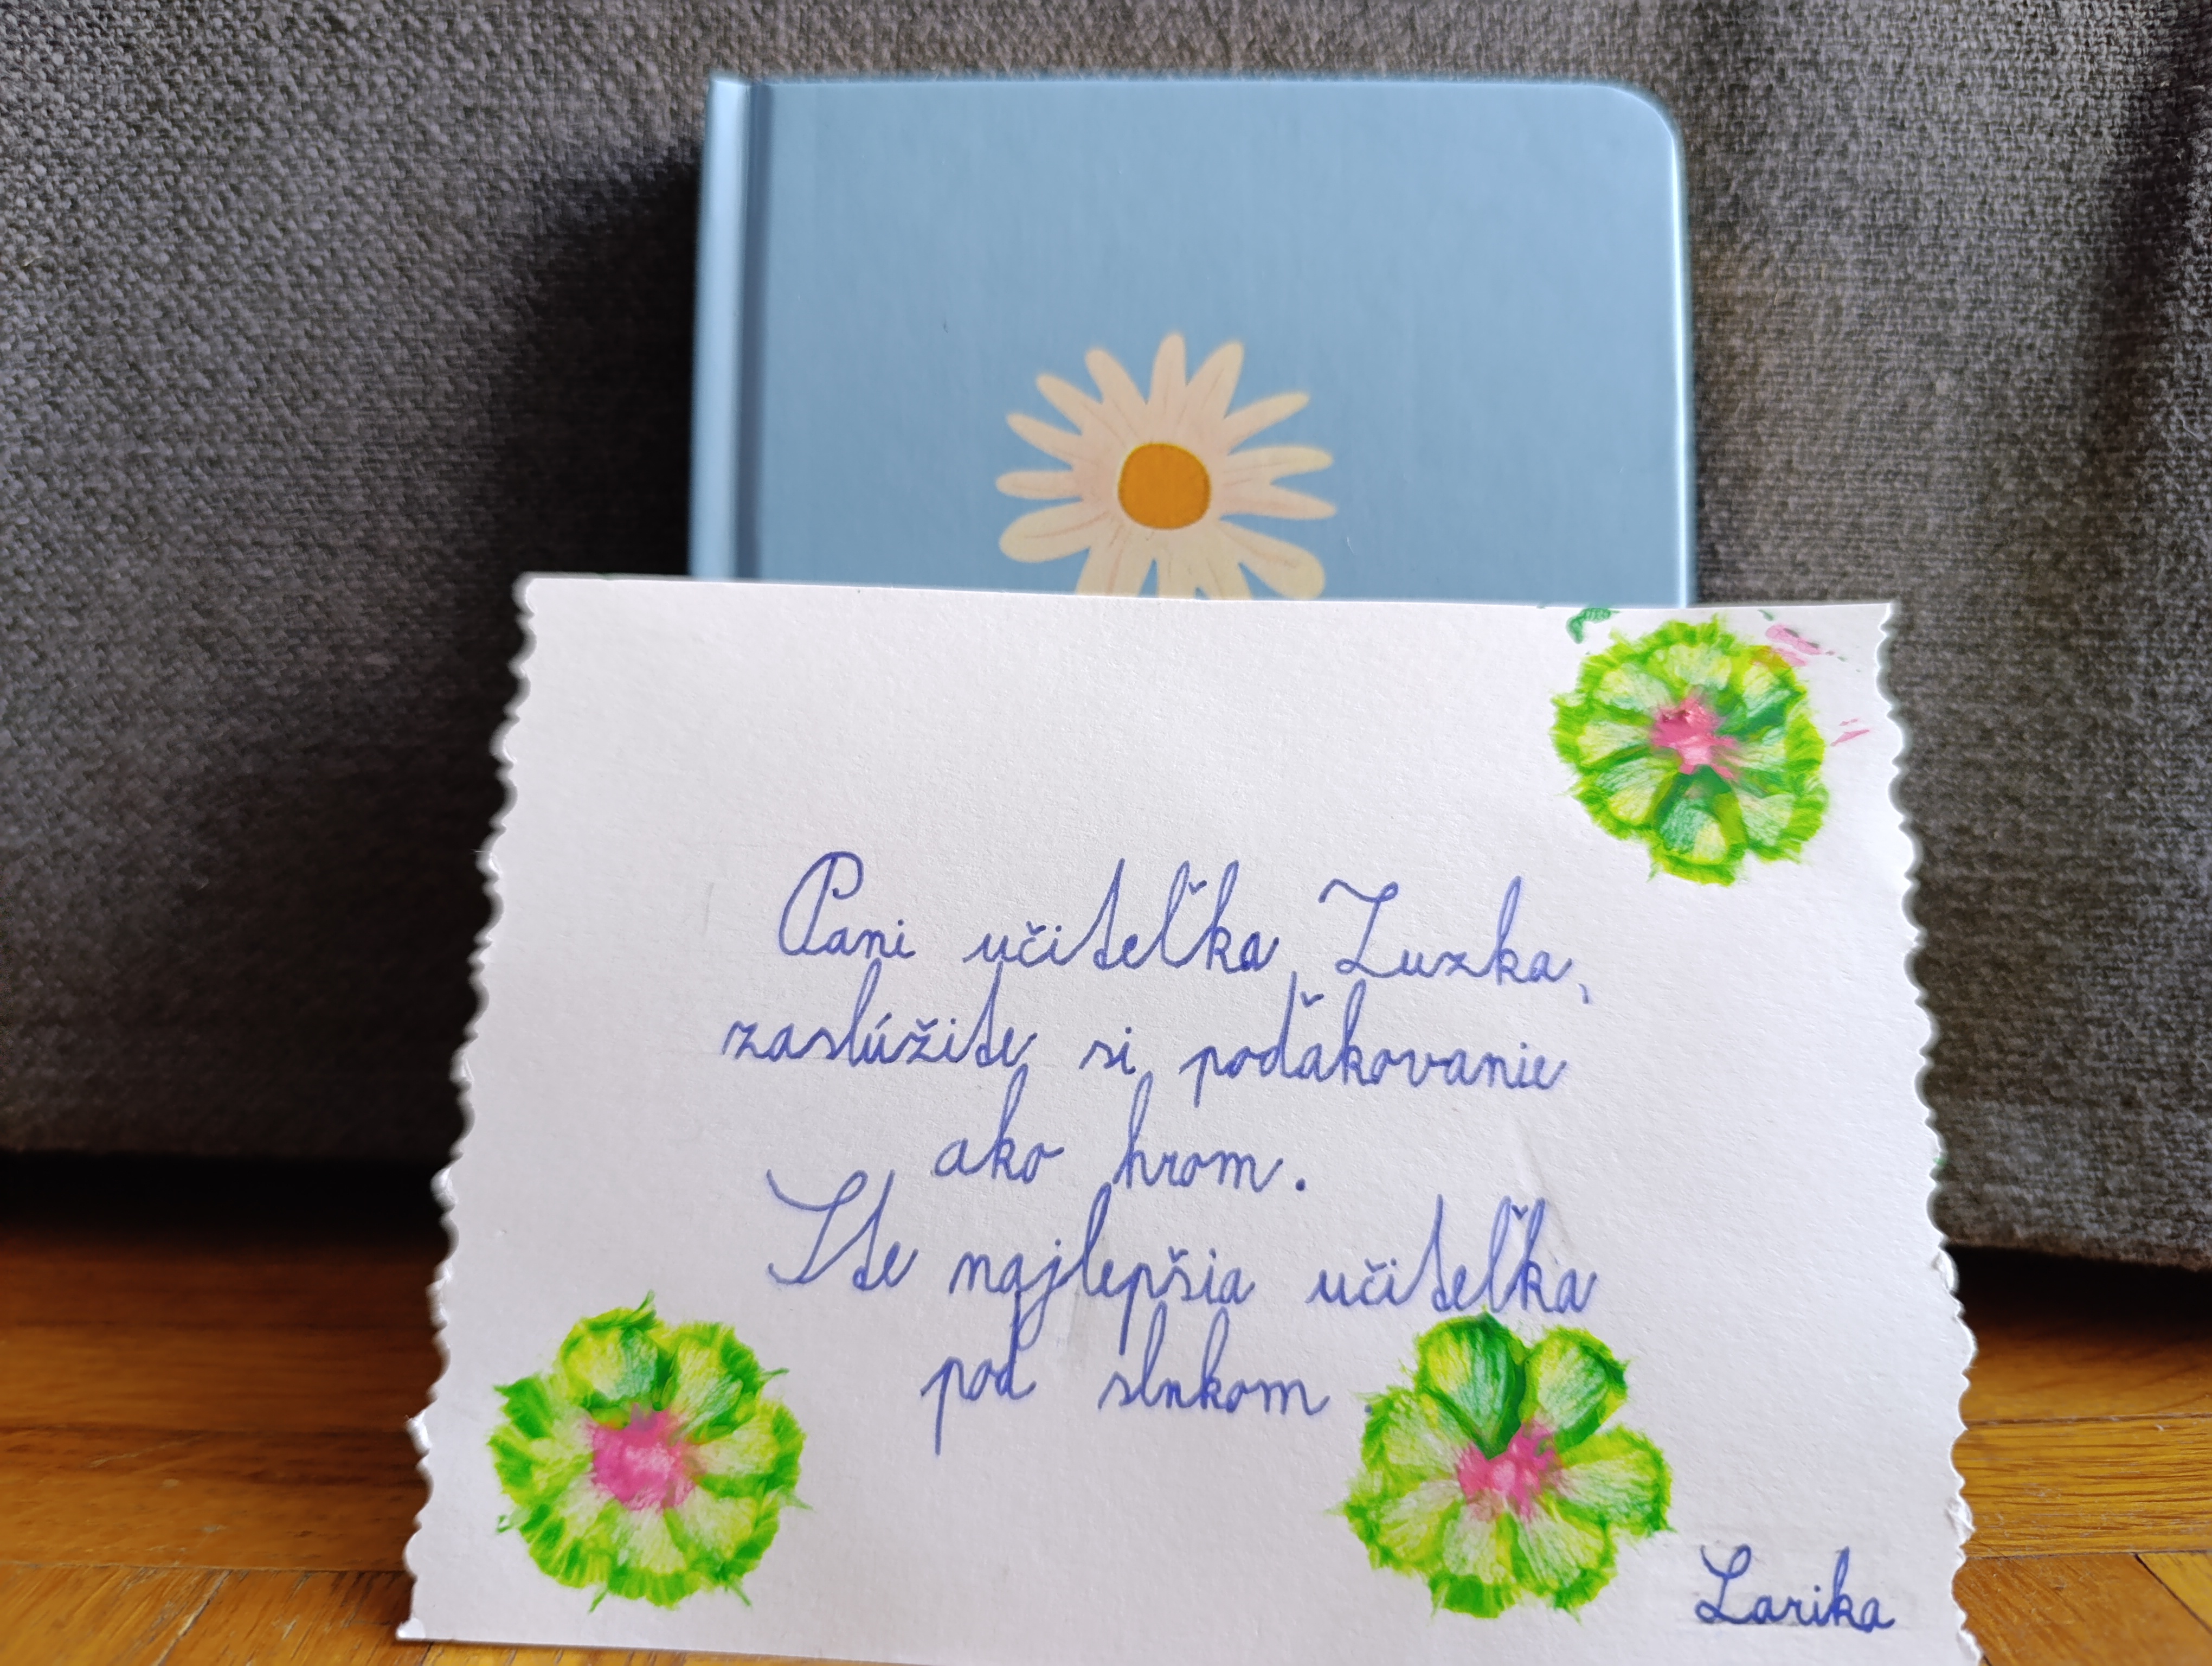 Pani učiteľka Zuzka,
zaslúžite si poďakovanie
ako hrom.
Ste najlepšia učiteľka
pod slnkom.
Larika